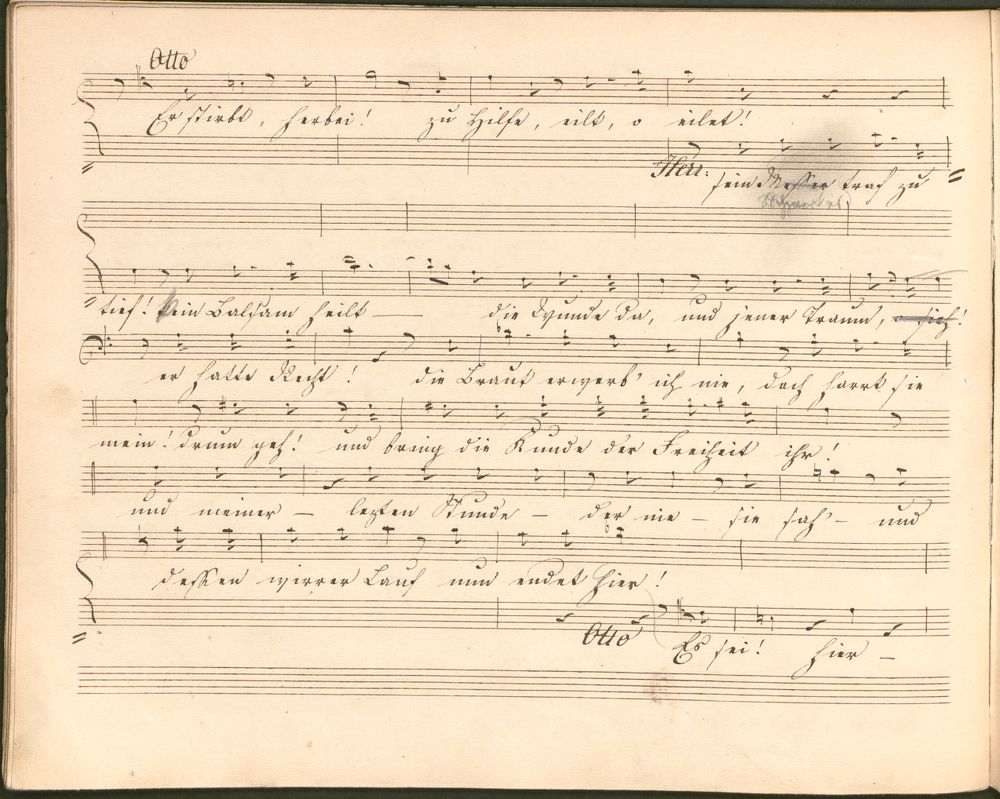 Otto
Er stirbt, herbei! zu Hilfe, eilt, o eilet!
Herr: sein Messer traf zu
tief! Kein Balsam heilt — die Wunde da, und jener Traum, o sieh!
er hatte Recht! die Braut erwerb' ich nie, doch harrt sie
mein! drum geh! und bring die Kunde der Freiheit ihr!
und meiner — lezten Stunde — der nie — sie sah' — und
dessen wirrer Lauf nun endet hier!
Otto Es sei! hier —